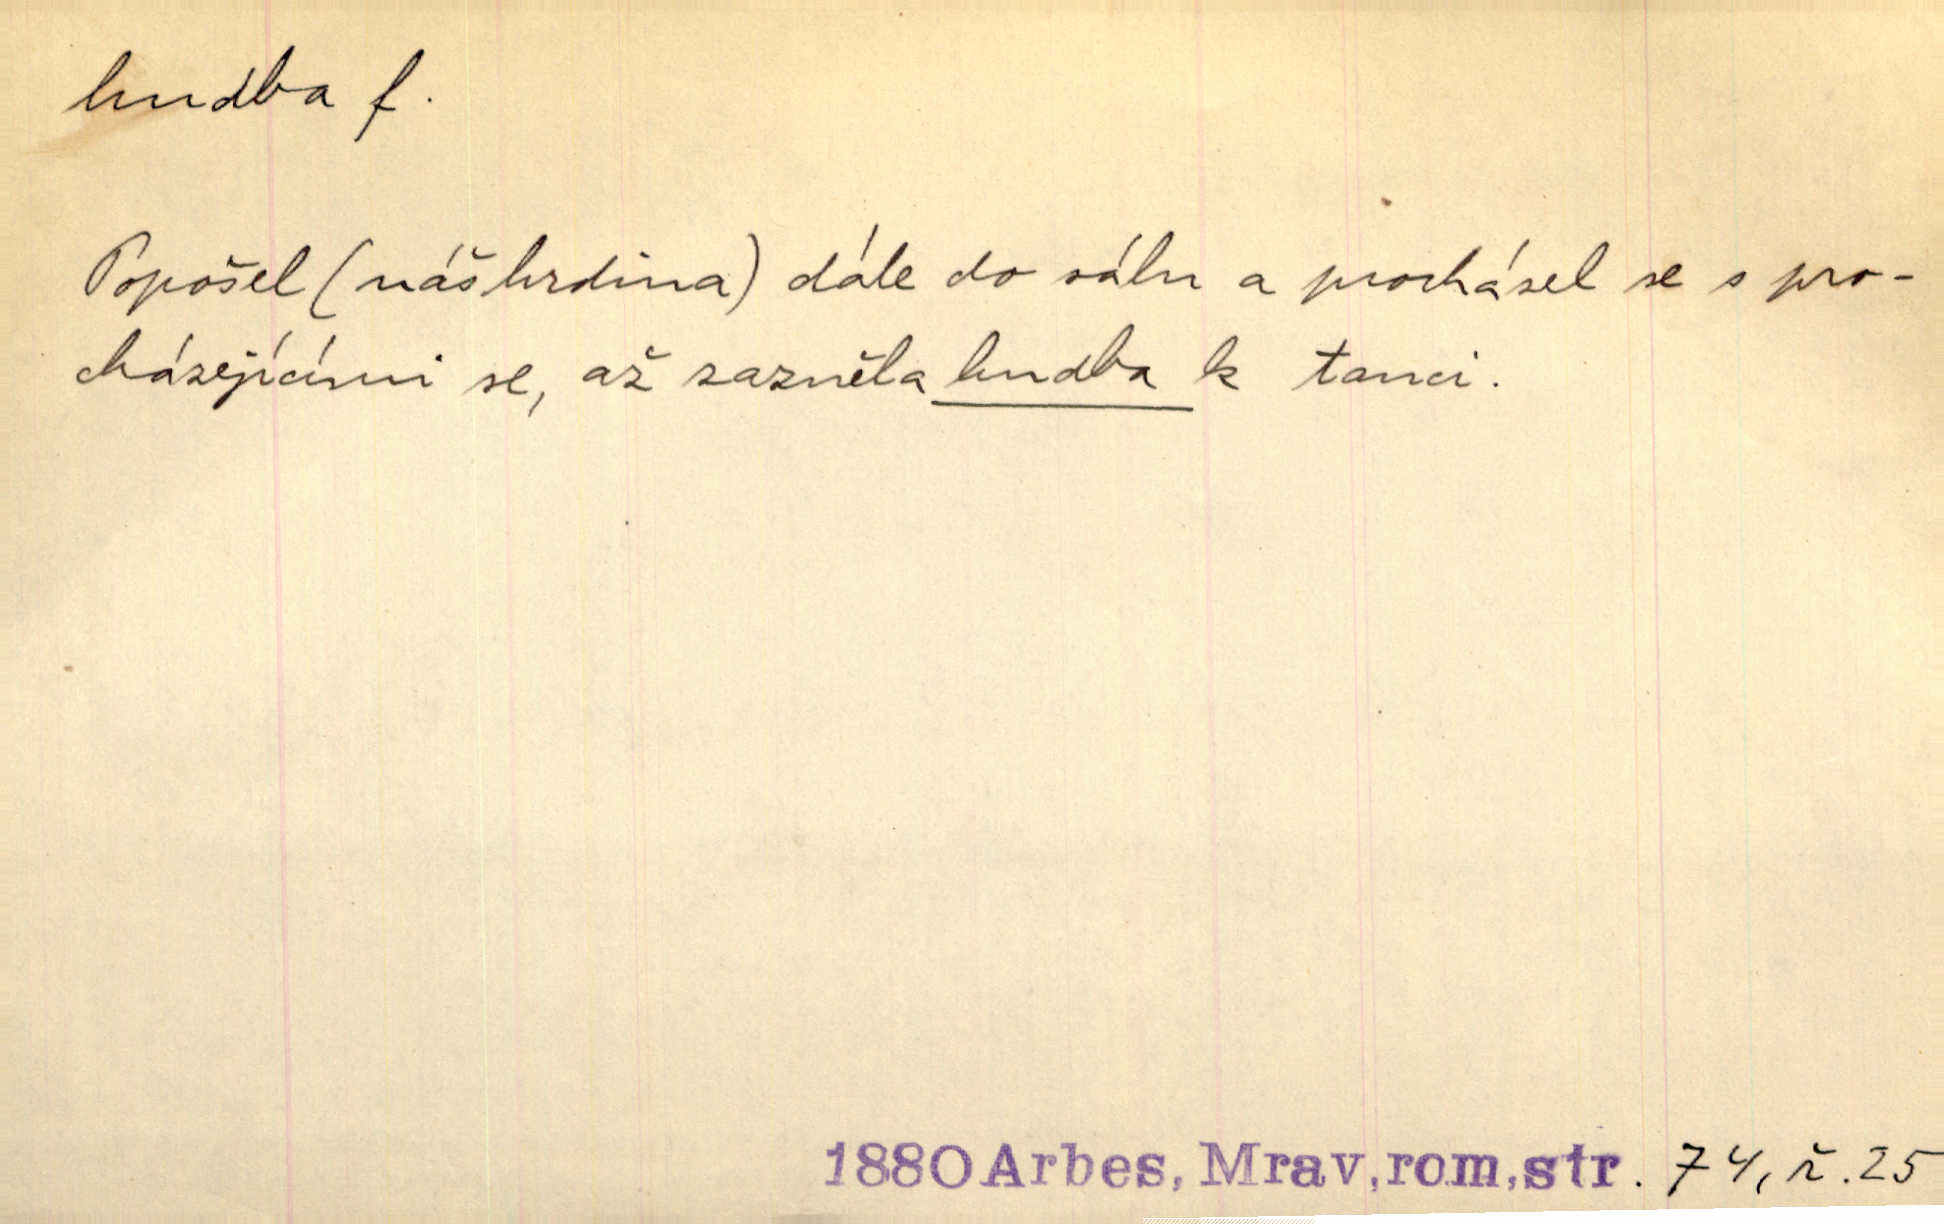 hudba f.
Popošel (náš hrdina) dále do sálu a procházel se s pro-
cházejícími se, až zazněla hudba k tanci.
1880 Arbes, Mrav, rom, str. 74, ř. 25